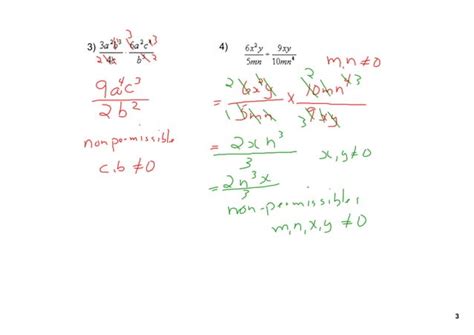 3) 3a²b³/4c · 6a²c⁴/b⁵
9a⁴c³
2b²
non permissible
c,b ≠0
4) 6x²y/5mn ÷ 9xy/10mn⁴
m,n ≠0
= 6x²y/5mn x 10mn⁴/9xy
= 2xn³/3 x,y≠0
= 2n³x/3
non-permissibles
m,n,x,y ≠0
3